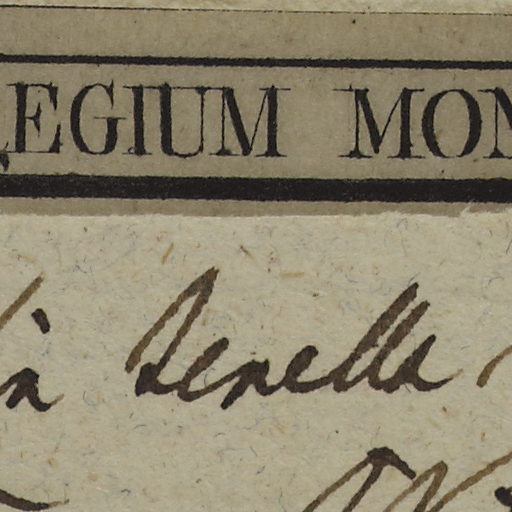 LEGIUM MON
in tenella